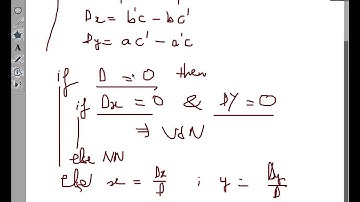 Dx = b'c - bc'
Dy = ac' - a'c
if D = 0 then
if Dx = 0 & DY = 0
⇒ VSN
else NN
else x = Dx/D ; y = Dy/D